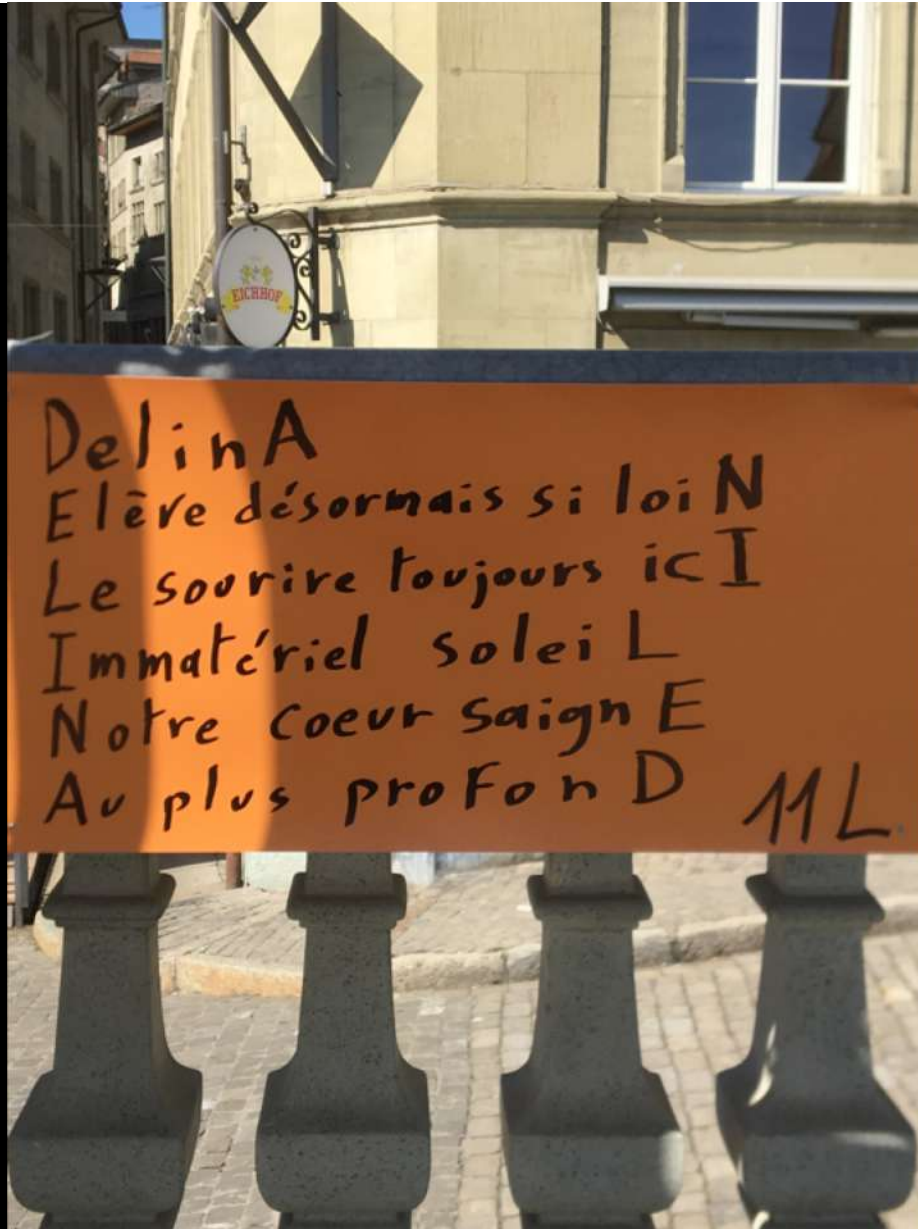 EICHHOF
DelinA
Elève désormais si loiN
Le sourire toujours icI
Immatériel soleiL
Notre coeur saignE
Au plus profonD
11L.